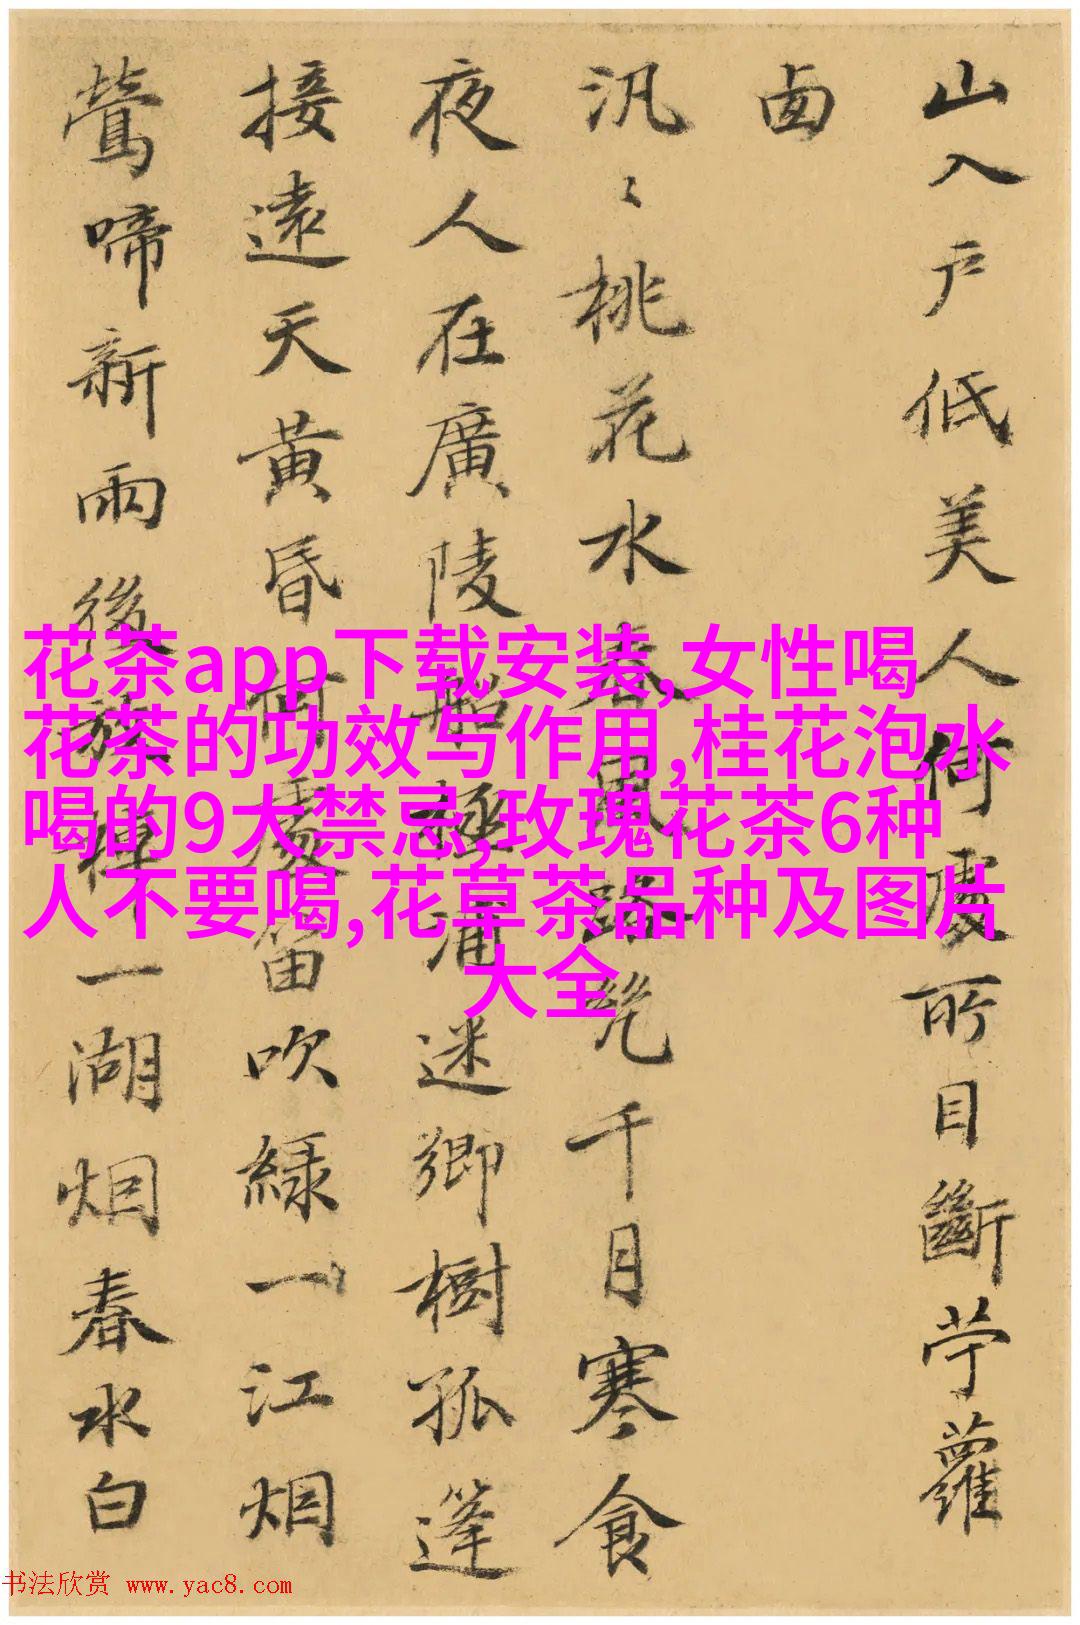 山入户低美人何處所目斷苧蘿
汎〻桃花水春風千月寒食
夜人在廣陵船極浦迷卿樹孤篷
接遠天黃昏何處笛吹緑一江烟
鶯啼新雨後一湖烟春水白
花茶app下载安装,女性喝
花茶的功效与作用,桂花泡水
喝的9大禁忌,玫瑰花茶6种
人不要喝,花草茶品种及图片
大全
书法欣赏 www.yac8.com